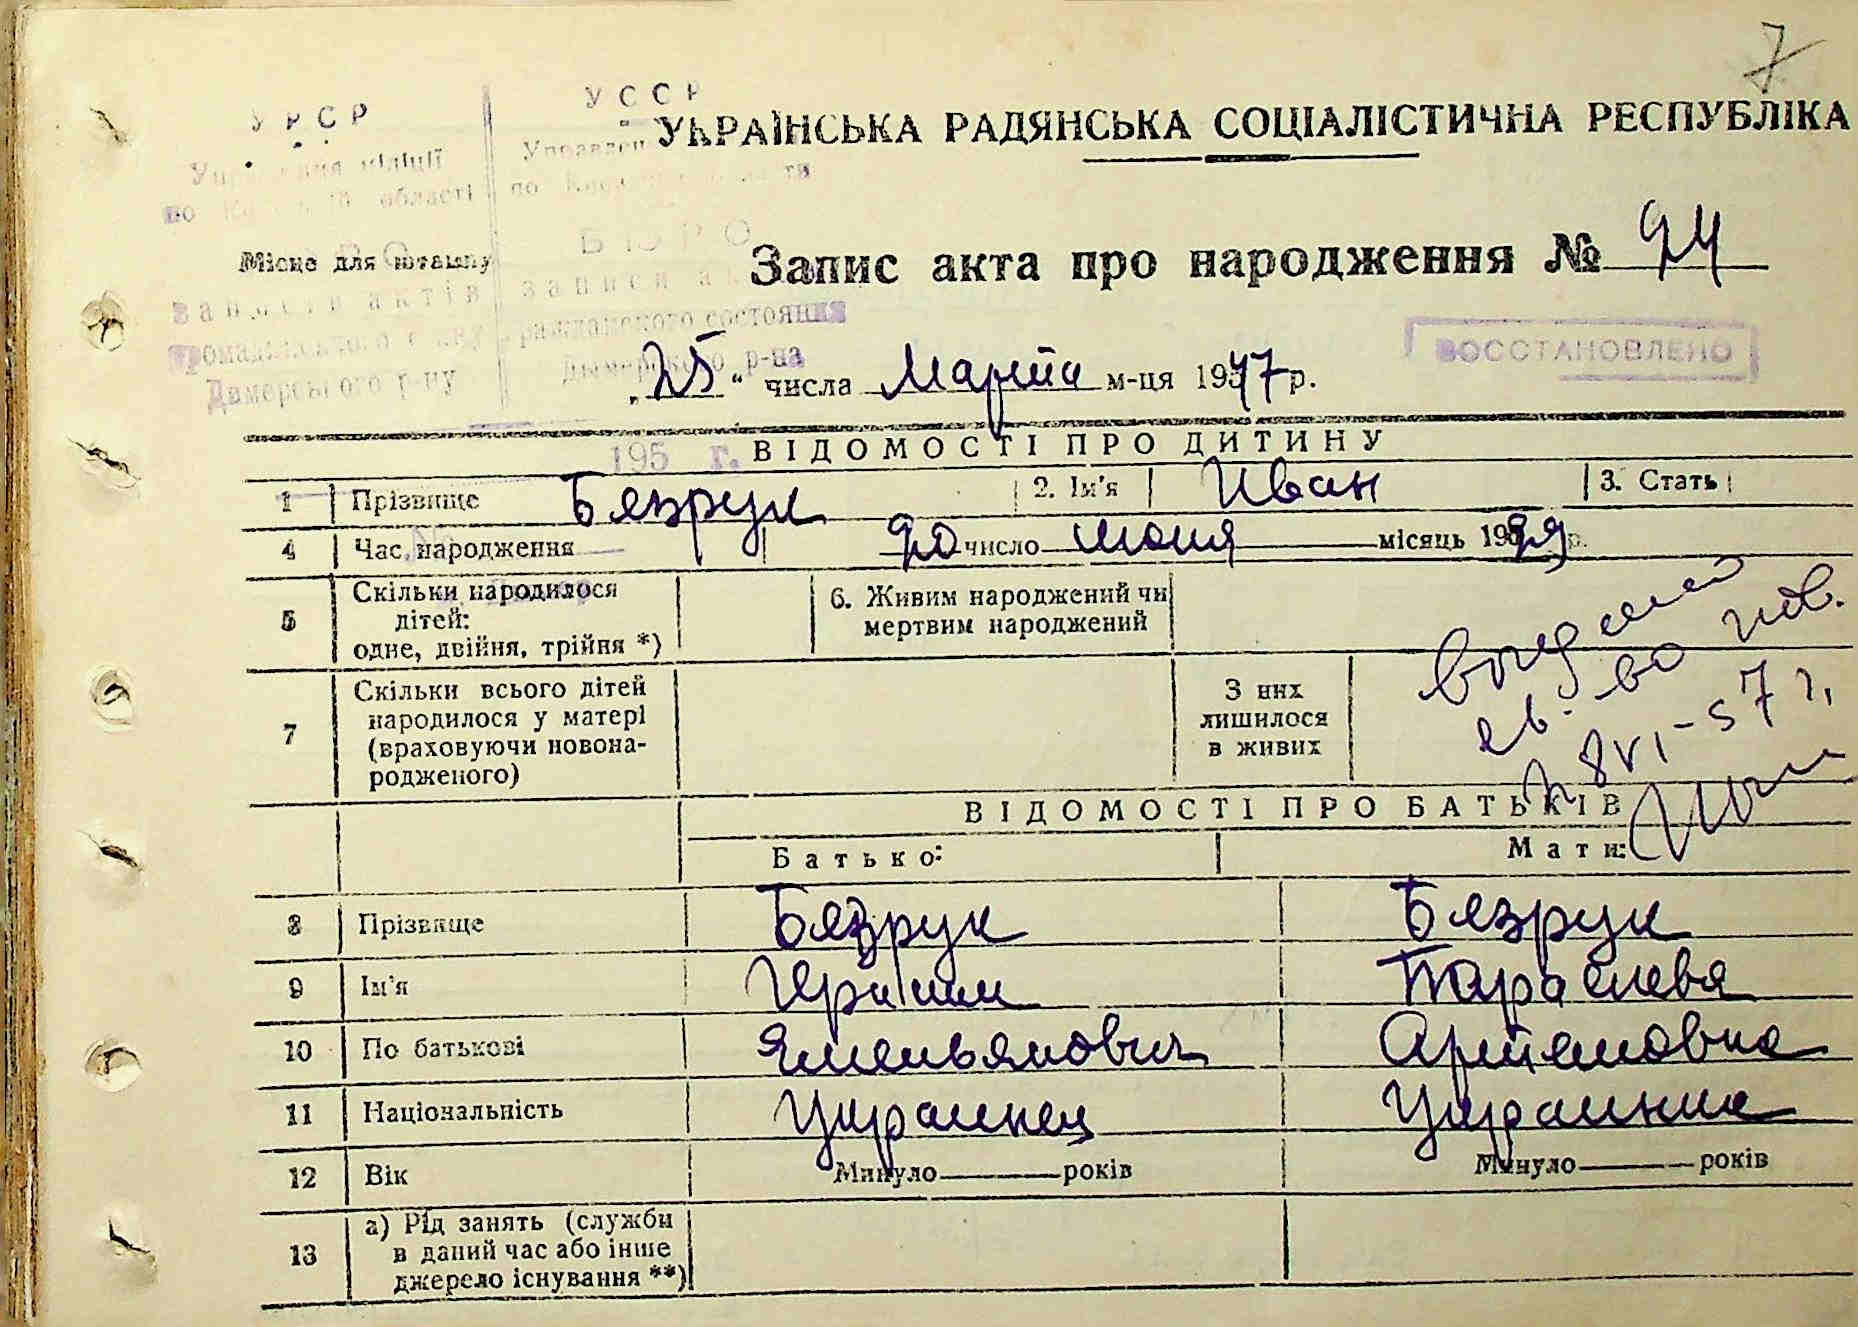 7
УРСР
УССР
УКРАЇНСЬКА РАДЯНСЬКА СОЦІАЛІСТИЧНА РЕСПУБЛІКА
Управління міліції
по області
Місце для штампу
БЮРО
Запис акта про народження № 24
записи актів
громадянського стану
гражданского состояния
Димерського р-ну
Дымерского р-на
ВОССТАНОВЛЕНО
„25“ числа Марта м-ця 1947 р.
195 г.
ВІДОМОСТІ ПРО ДИТИНУ
1 Прізвище Безрук 2. Ім'я Иван 3. Стать
4 Час народження 20 число июня місяць 1929 р.
5 Скільки народилося дітей: одне, двійня, трійня *) 6. Живим народжений чи мертвим народжений
7 Скільки всього дітей народилося у матері (враховуючи новонародженого) З них лишилося в живих
св-во
8 VI-57 г.
ВІДОМОСТІ ПРО БАТЬКІВ
Батько: Мати:
8 Прізвище Безрук Безрук
9 Ім'я
10 По батькові Емельянович Артемовна
11 Національність Украинец Украинка
12 Вік Минуло років Минуло років
13 а) Рід занять (служби в даний час або інше джерело існування **)